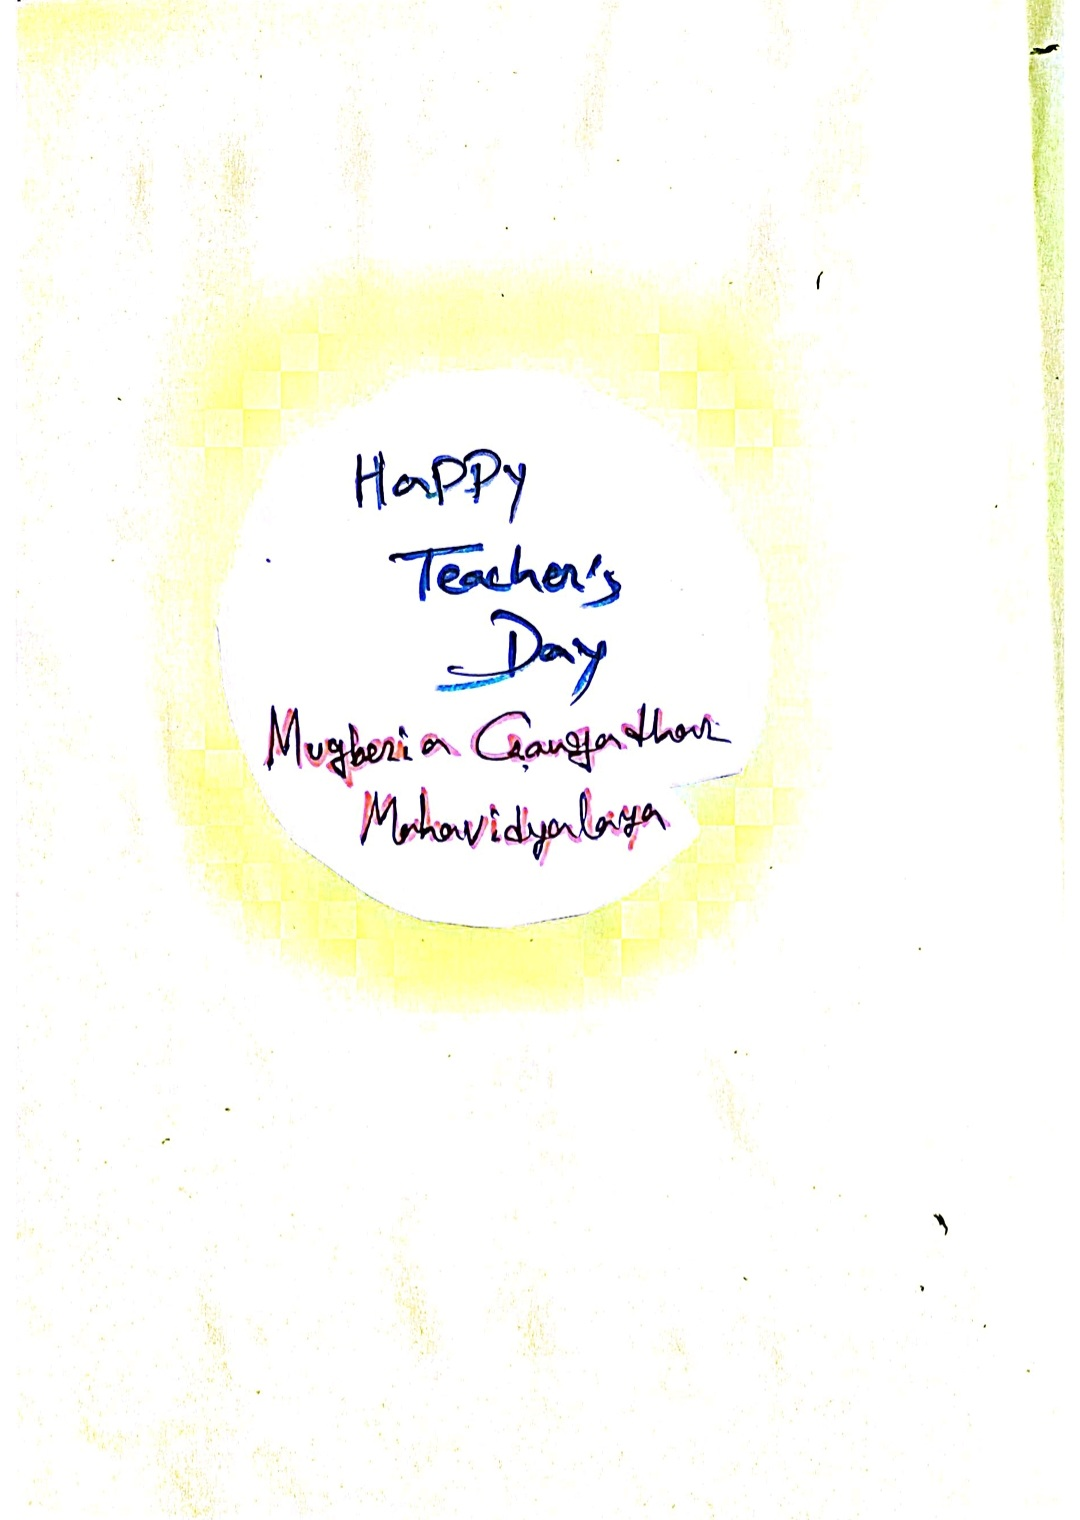 Happy
Teacher's
Day
Mugberia Gangadhar
Mahavidyalaya